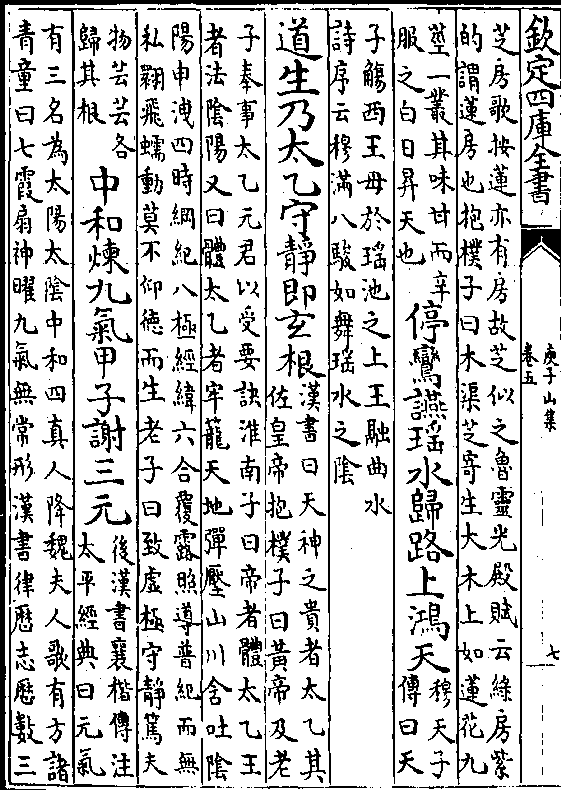 欽定四庫全書
庾子山集
卷五
七
芝房歌按蓮亦有房故芝似之魯靈光殿賦云綠房紫
的謂蓮房也抱樸子曰木渠芝寄生大木上如蓮花九
莖一叢其味甘而辛
服之白日昇天也
停鸞讌瑤水歸路上鴻天
穆天子
傳曰天
子觴西王母於瑤池之上王融曲水
詩序云穆滿八駿如舞瑤水之陰
道生乃太乙守靜即玄根
漢書曰天神之貴者太乙其
佐皇帝抱樸子曰黃帝及老
子奉事太乙元君以受要訣淮南子曰帝者體太乙王
者法陰陽又曰體太乙者牢籠天地彈壓山川含吐陰
陽申洩四時綱紀八極經緯六合覆露照導普紀而無
私翾飛蠕動莫不仰德而生老子曰致虛極守靜篤夫
物芸芸各
歸其根
中和煉九氣甲子謝三元
後漢書襄楷傳注
太平經典曰元氣
有三名為太陽太陰中和四真人降魏夫人歌有方諸
青童曰七霞扇神曜九氣無常形漢書律歷志歷數三